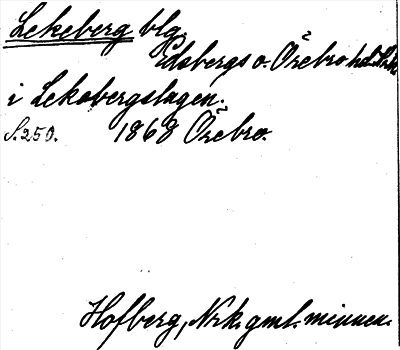 Lekeberg blg.
Edsbergs o. Örebro hd.
i Lekebergslagen.
S. 250. 1868 Örebro.
Hofberg, Nrk. gml. minnen.